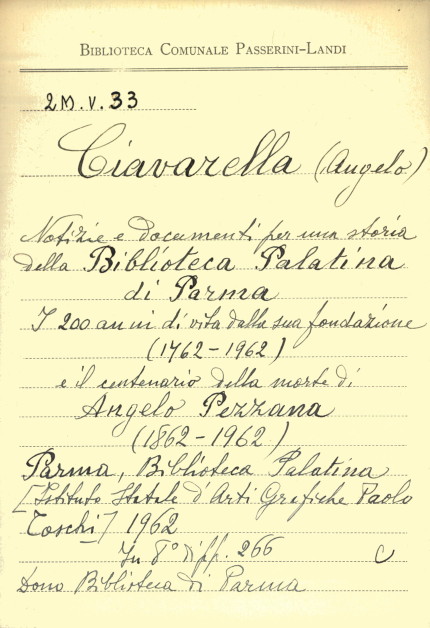 BIBLIOTECA COMUNALE PASSERINI-LANDI
2M.V.33
Ciavarella (Angelo)
Notizie e documenti per una storia
della Biblioteca Palatina
di Parma
I 200 anni di vita dalla sua fondazione
(1762-1962)
e il centenario della morte di
Angelo Pezzana
(1862-1962)
Parma, Biblioteca Palatina
[Istituto Statale d'Arti Grafiche Paolo
Toschi] 1962
In 8° di pp. 266 C
Dono Biblioteca di Parma